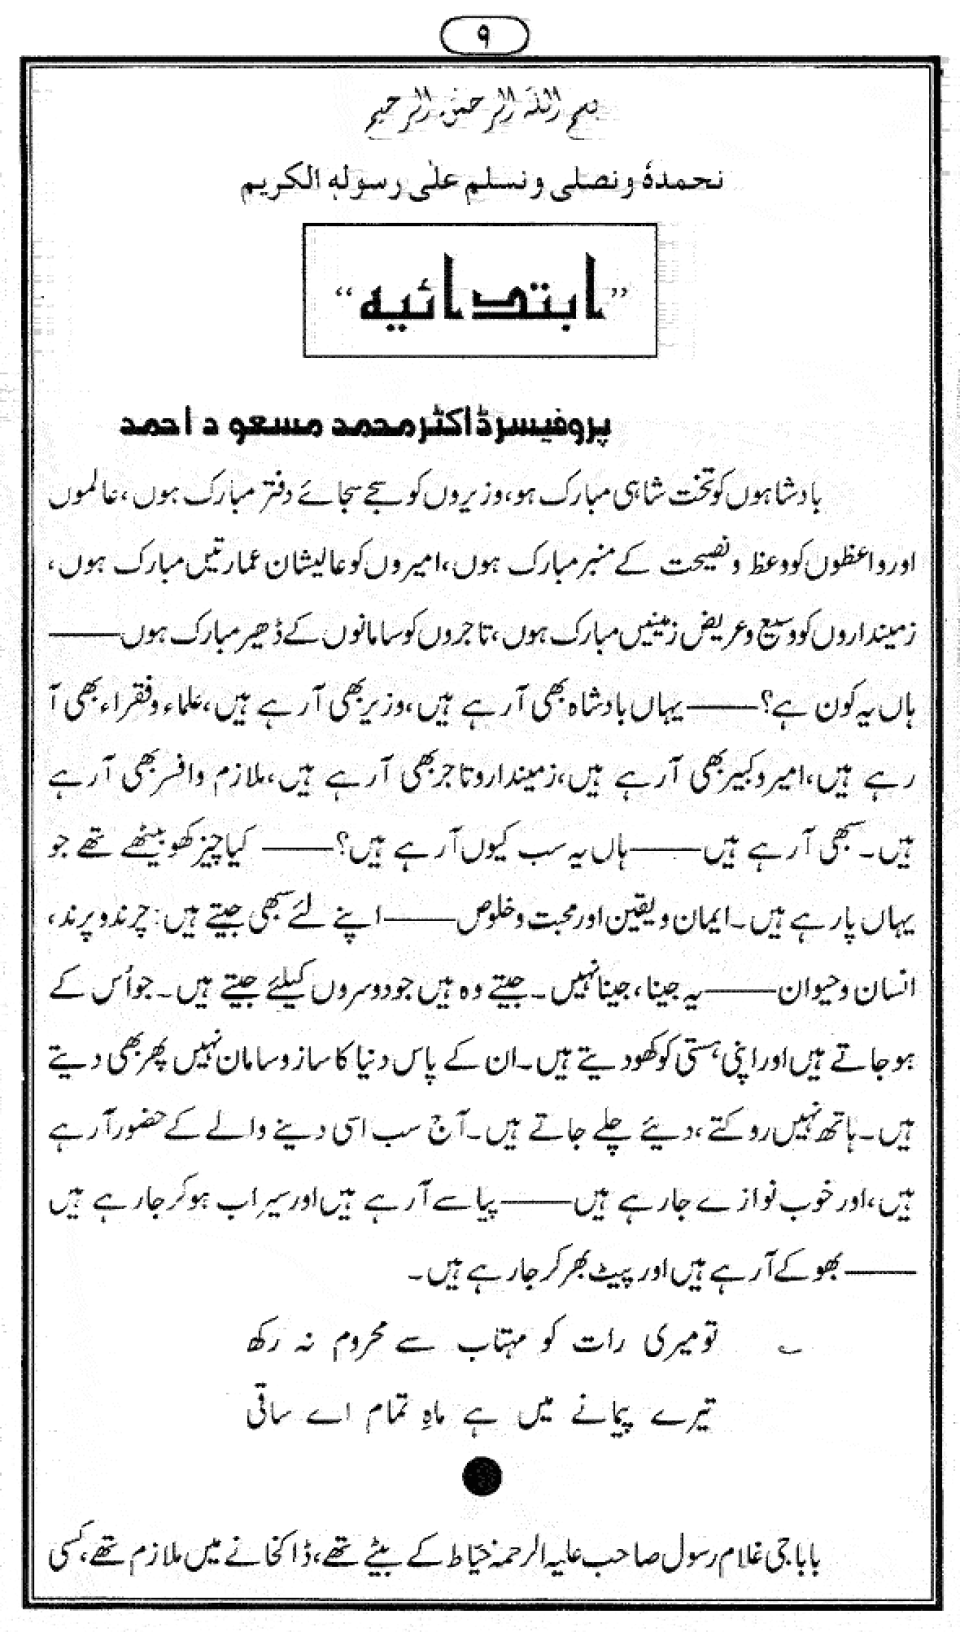 ۹
بسم اللہ الرحمن الرحیم
نحمدہٗ ونصلی ونسلم علیٰ رسولہ الکریم
”ابتدائیہ“
پروفیسر ڈاکٹر محمد مسعود احمد
بادشاہوں کو تخت شاہی مبارک ہو، وزیروں کو سجے سجائے دفتر مبارک ہوں، عالموں
اور واعظوں کو وعظ و نصیحت کے منبر مبارک ہوں، امیروں کو عالیشان عمارتیں مبارک ہوں،
زمینداروں کو وسیع و عریض زمینیں مبارک ہوں، تاجروں کو سامانوں کے ڈھیر مبارک ہوں——
ہاں یہ کون ہے؟——یہاں بادشاہ بھی آرہے ہیں، وزیر بھی آرہے ہیں، علماء و فقراء بھی آ
رہے ہیں، امیر و کبیر بھی آرہے ہیں، زمیندار و تاجر بھی آرہے ہیں، ملازم و افسر بھی آرہے
ہیں۔ سبھی آرہے ہیں——ہاں یہ سب کیوں آرہے ہیں؟——کیا چیز کھو بیٹھے تھے جو
یہاں پارہے ہیں۔ ایمان و یقین اور محبت و خلوص——اپنے لئے سبھی جیتے ہیں: چرند و پرند،
انسان و حیوان——یہ جینا، جینا نہیں۔ جیتے وہ ہیں جو دوسروں کیلئے جیتے ہیں۔ جو اُس کے
ہو جاتے ہیں اور اپنی ہستی کو کھو دیتے ہیں۔ ان کے پاس دنیا کا ساز و سامان نہیں پھر بھی دیتے
ہیں۔ ہاتھ نہیں روکتے، دیئے چلے جاتے ہیں۔ آج سب اسی دینے والے کے حضور آرہے
ہیں، اور خوب نوازے جارہے ہیں——پیاسے آرہے ہیں اور سیراب ہو کر جارہے ہیں
——بھوکے آرہے ہیں اور پیٹ بھر کر جارہے ہیں۔
؎ تو میری رات کو مہتاب سے محروم نہ رکھ
تیرے پیمانے میں ہے ماہِ تمام اے ساقی
بابا جی غلام رسول صاحب علیہ الرحمہ خیّاط کے بیٹے تھے، ڈاکخانے میں ملازم تھے، کسی